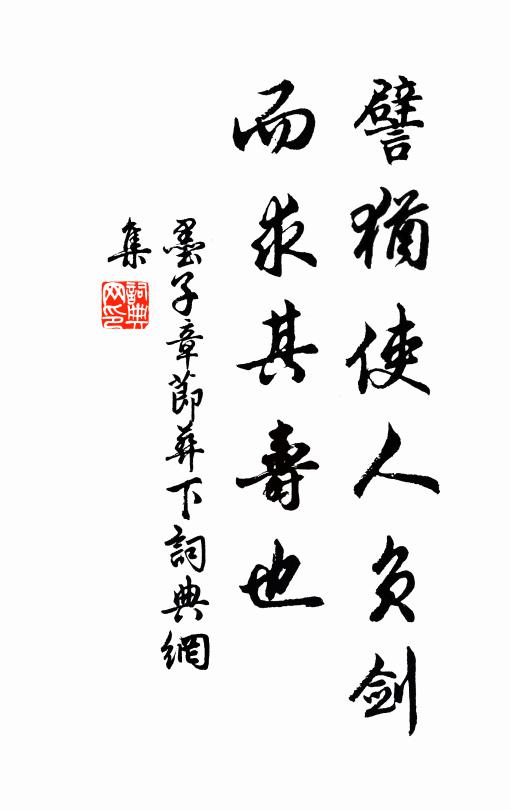 譬猶使人负剑
而求其壽也
墨子章節葬下詞典網
集
詞典网印